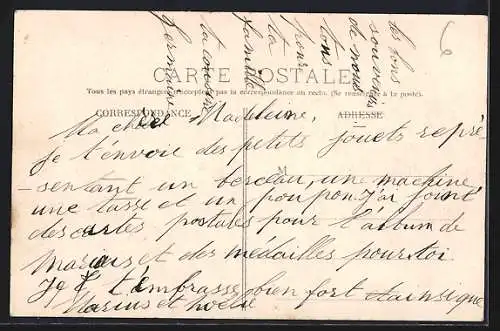 CARTE POSTALE
Tous les pays étrangers n'acceptent pas la correspondance au recto. (Se renseigner à la poste).
CORRESPONDANCE
ADRESSE
Ma chère Madeleine,
je t'envoie des petits jouets repré-
-sentant un berceau, une machine
une tasse et un poupon. J'ai joint
des cartes postales pour l'album de
Marius et des médailles pour toi
t'embrasse bien fort ainsi que
Marius et Noélie
les bons
souvenirs
de nous
tous
pour
ta
famille
ta cousine
Germaine